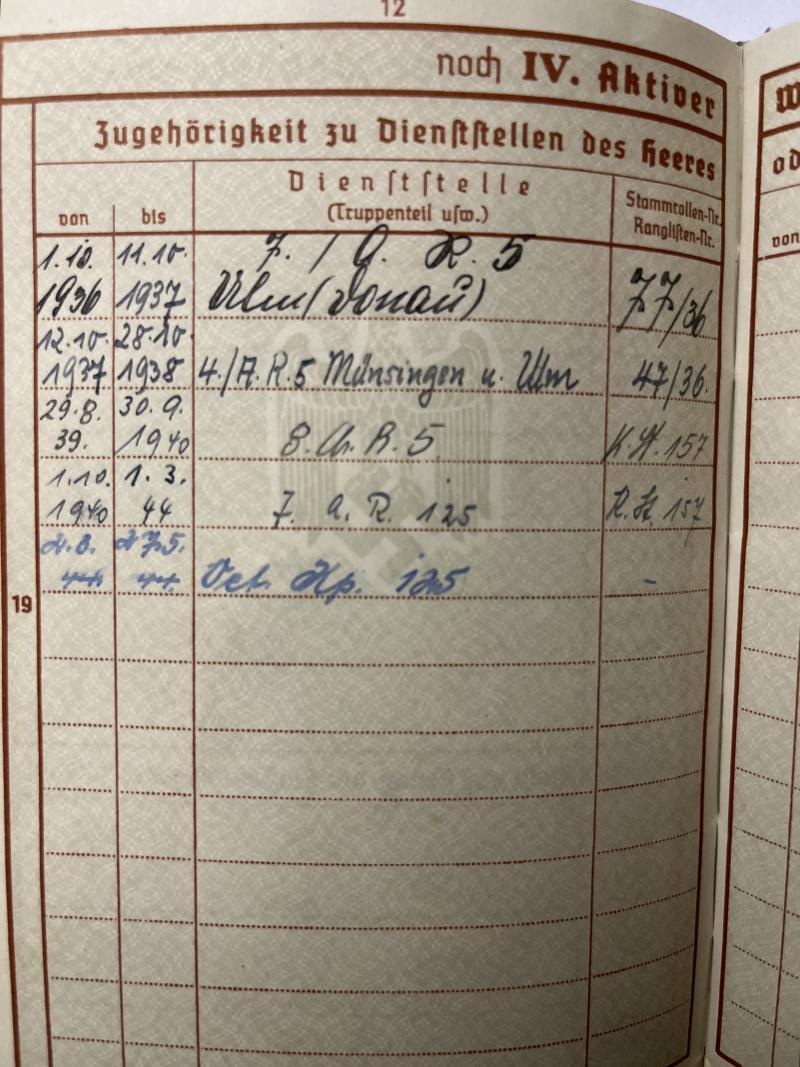 12
noch IV. Aktiver
W
Zugehörigkeit zu Dienststellen des Heeres
od
von bis Dienststelle (Truppenteil usw.) Stammrollen-Nr. Ranglisten-Nr.
von
1.10. 11.10. 7. / A. R. 5
1936 1937 Ulm (Donau) 77/36
12.10. 28.10.
1937 1938 4./A.R.5 Münsingen u. Ulm 47/36.
29.8. 30.9.
39. 1940 8. A. R. 5 K. St. 157
1.10. 1.3.
1940 44 7. A. R. 125 K. St. 157
2.3. 27.5.
44. 44. Vet. Kp. 125 -
19